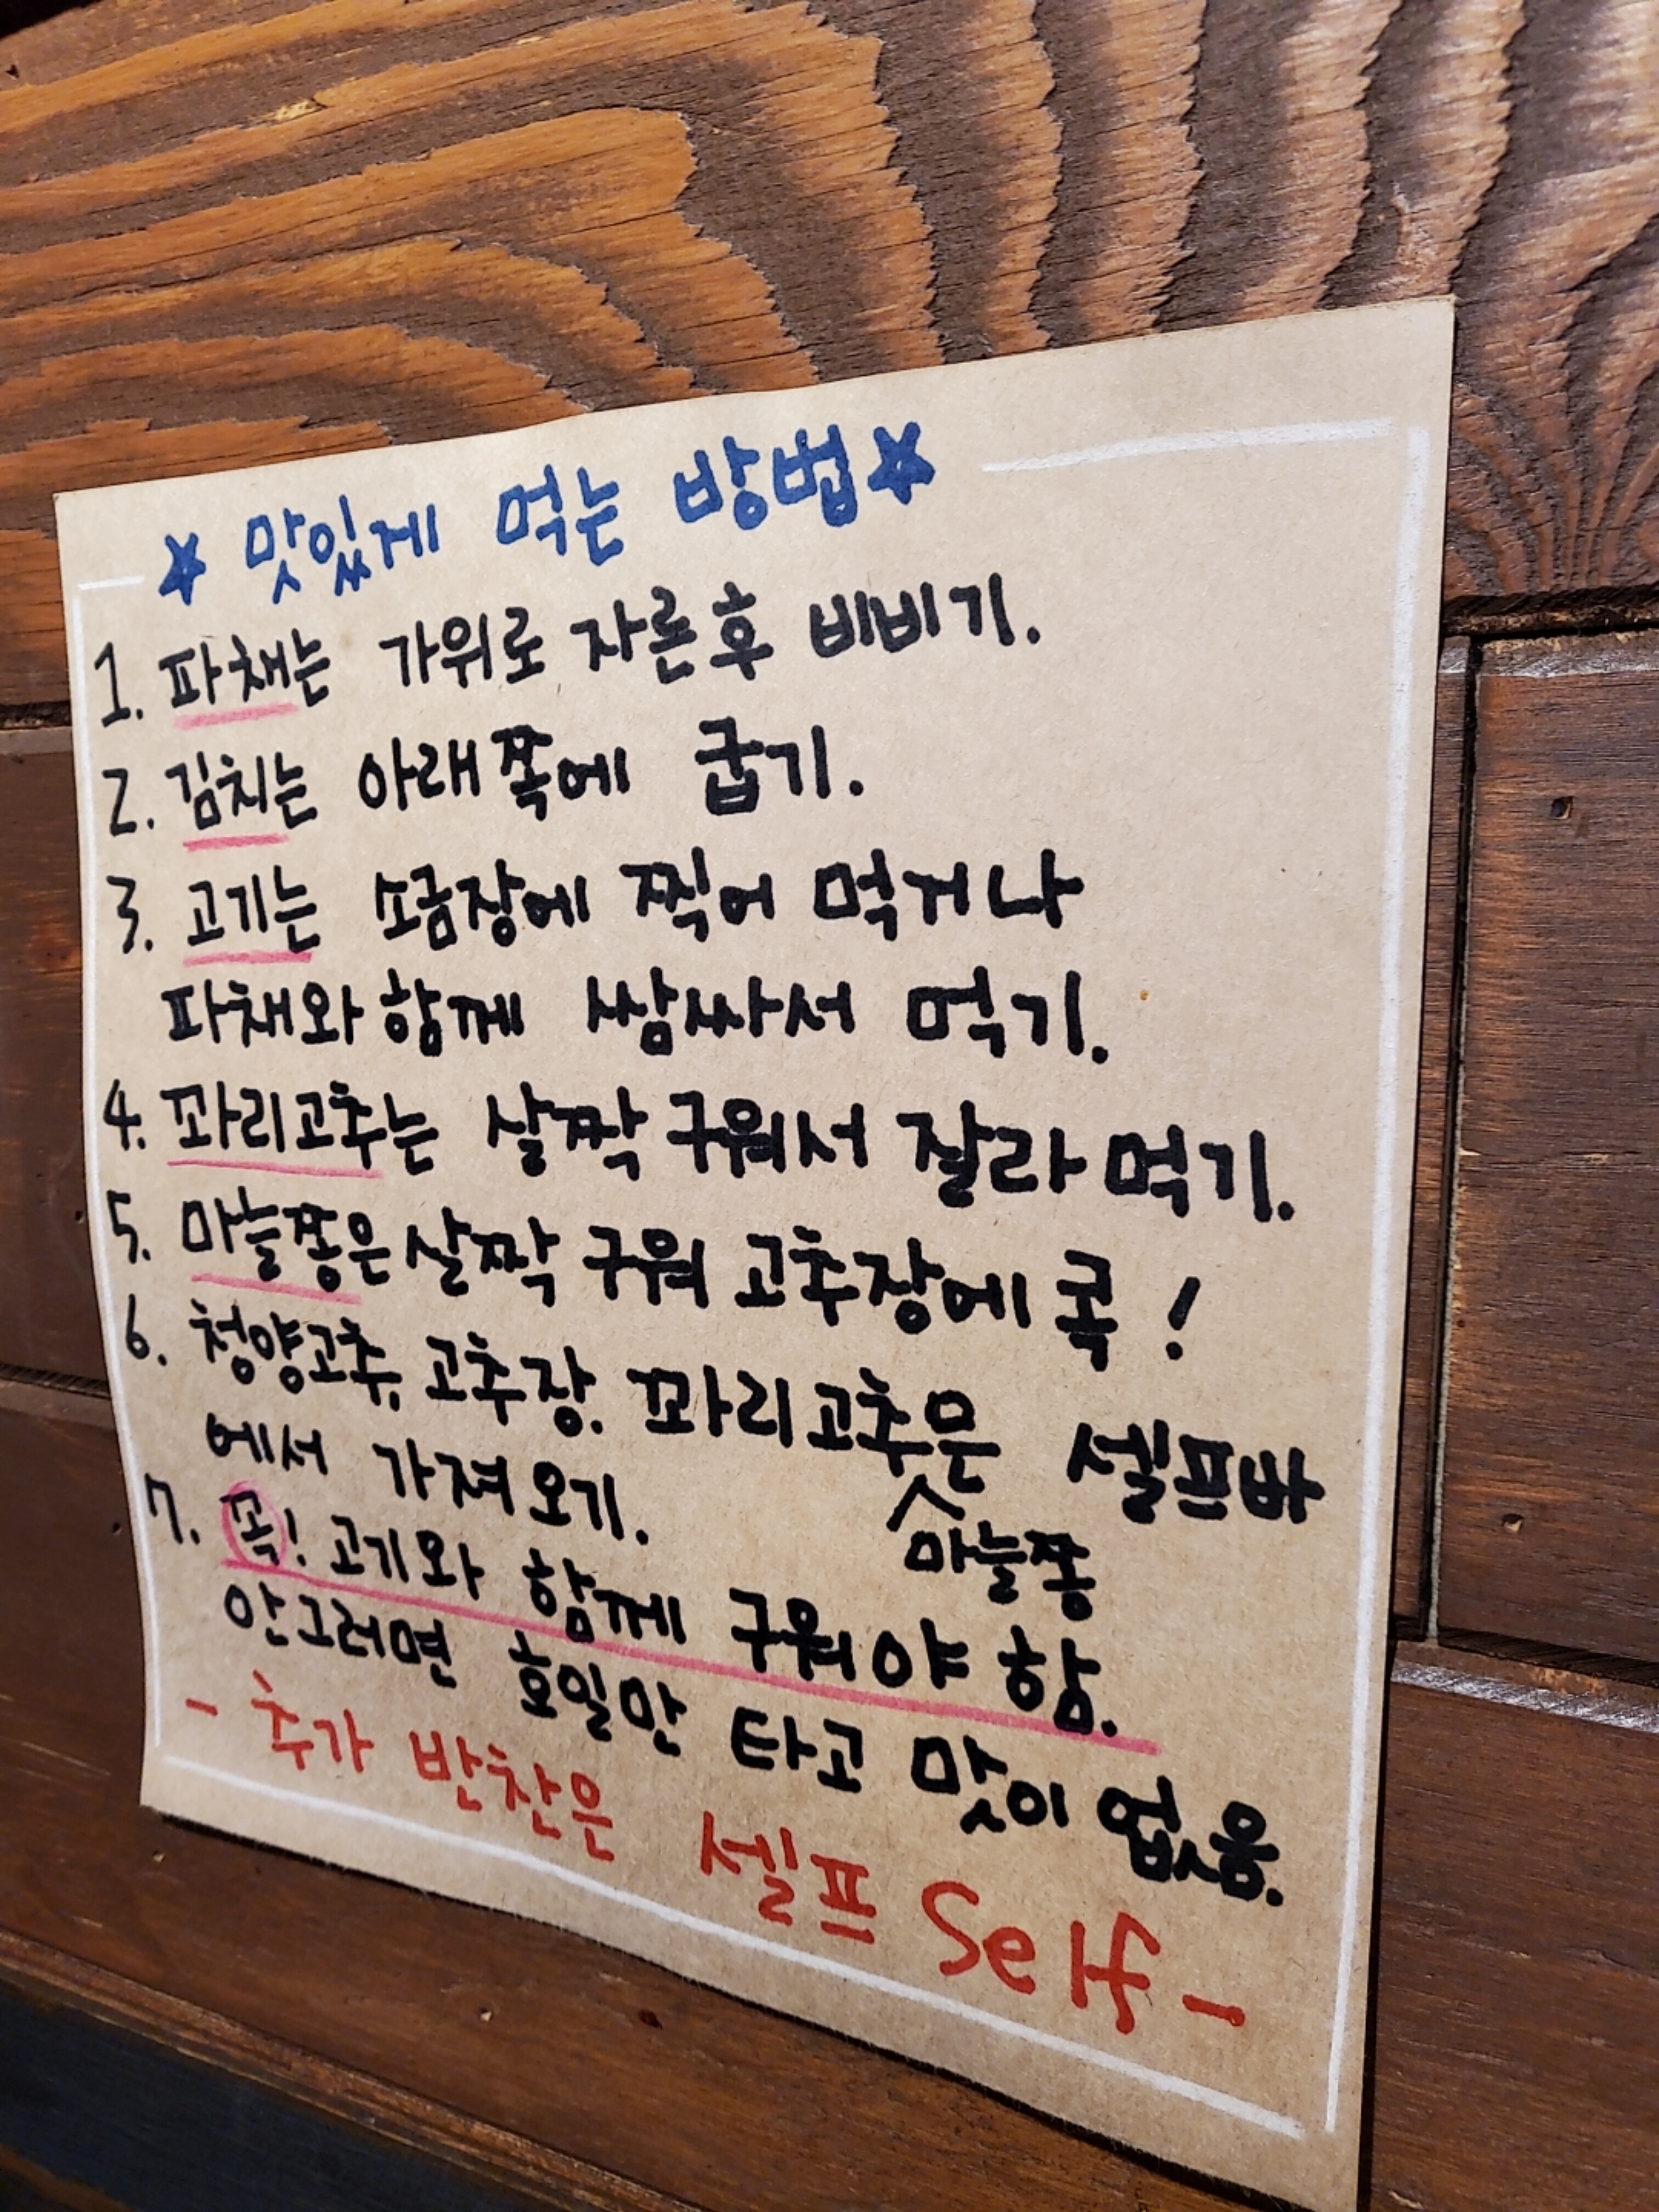 ☆ 맛있게 먹는 방법 ☆
1. 파채는 가위로 자른후 비비기.
2. 김치는 아래쪽에 굽기.
3. 고기는 소금장에 찍어 먹거나
파채와 함께 쌈싸서 먹기.
4. 꽈리고추는 살짝 구워서 잘라 먹기.
5. 마늘쫑은 살짝 구워 고추장에 콕!
6. 청양고추, 고추장, 꽈리고추은 셀프바
에서 가져오기.
마늘쫑
7. 꼭! 고기와 함께 구워야 함.
안그러면 호일만 타고 맛이 없음.
- 추가 반찬은 셀프 Self -